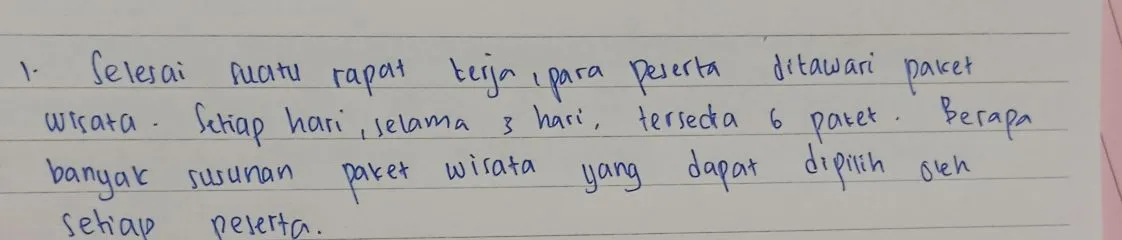 1. Selesai suatu rapat kerja, para peserta ditawari paket
wisata. Setiap hari, selama 3 hari, tersedia 6 paket. Berapa
banyak susunan paket wisata yang dapat dipilih oleh
setiap peserta.